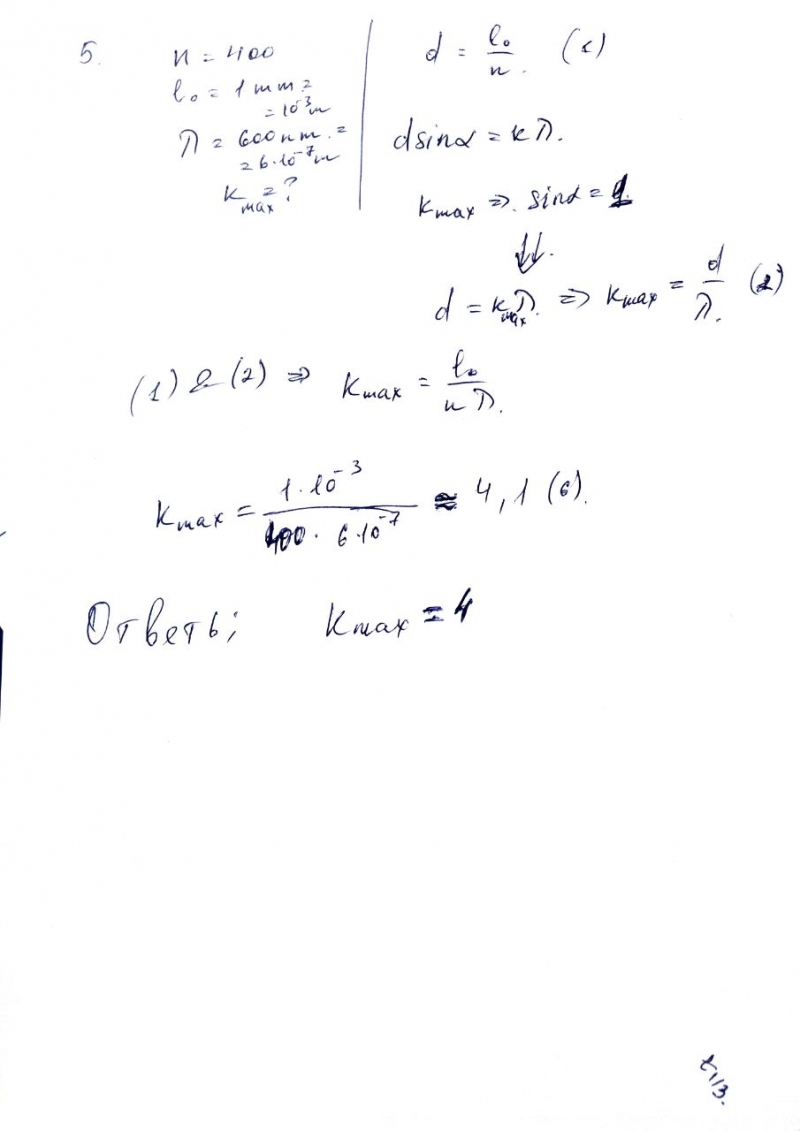 5. n = 400
l₀ = 1 mm =
= 10⁻³ m
λ = 600 nm. =
= 6·10⁻⁷ m
k max = ?
d = l₀/n. (1)
d sinα = kλ.
k max ⇒. sinα = 1.
⇓.
d = k max λ. ⇒ k max = d/λ. (2)
(1) & (2) ⇒ k max = l₀/nλ.
k max = 1·10⁻³/400·6·10⁻⁷ ≈ 4,1(6).
Ответь; k max = 4